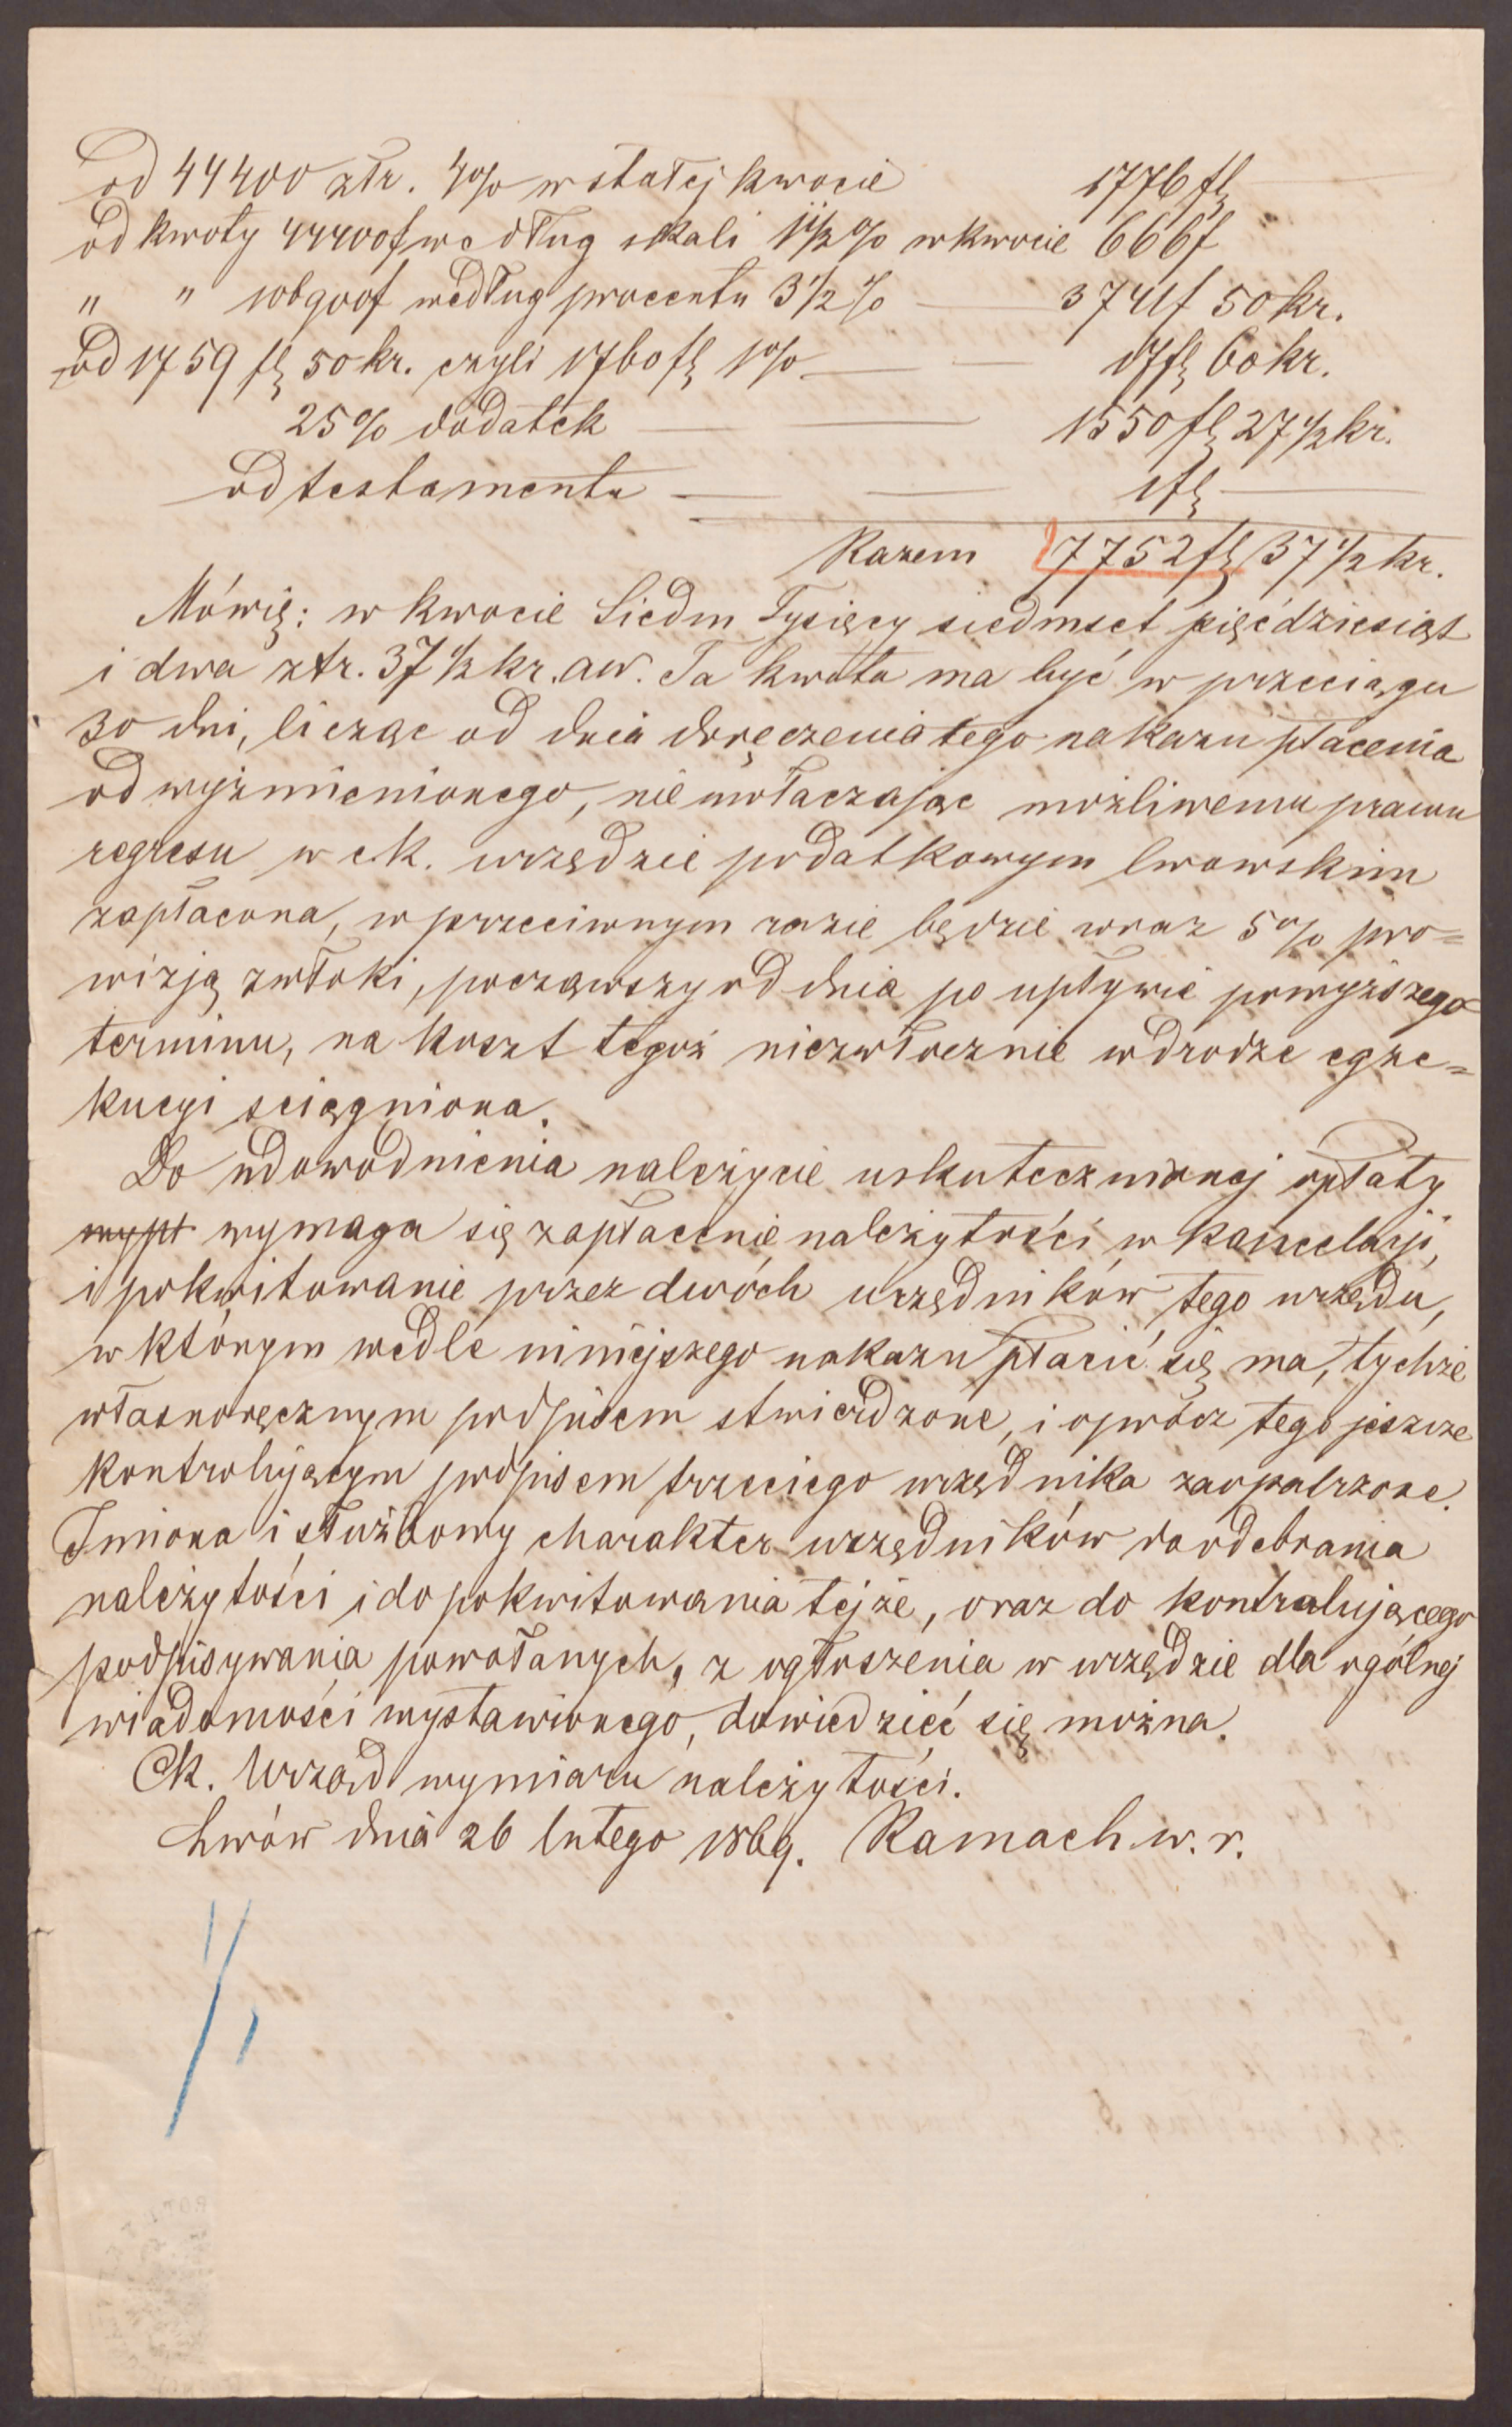 od 44400 złr. 4% w stałej kwocie 1776 fl
od kwoty 44400 f według skali 1 1/2 % w kwocie 666 f
" " 106900 f według procentu 3 1/2 % 3741 f 50 kr.
od 1759 fl 50 kr. czyli 1760 fl 1% 17 fl 60 kr.
25% dodatek 1550 fl 27 1/2 kr.
od testamentu 1 fl
Razem 7752 fl 37 1/2 kr.
Mówię: w kwocie Siedm Tysięcy siedmset pięćdziesiąt
i dwa złr. 37 1/2 kr. aw. Ta kwota ma być w przeciągu
30 dni, licząc od dnia doręczenia tego nakazu płacenia
od wyżmienionego, nie uwłaczając możliwemu prawu
regresu w c.k. urzędzie podatkowym lwowskim
zapłacona, w przeciwnym razie będzie wraz 5% pro=
wizją zwłoki, począwszy od dnia po upływie powyższego
terminu, na koszt tegoż niezwłocznie w drodze egze=
kucyi sciągniona.
Do udowodnienia należycie uskutecznionej opłaty
wypł wymaga się zapłacenie należytości w kancelaryi,
i pokwitowanie przez dwóch urzędników tego urzędu,
w którym wedle niniejszego nakazu płacić się ma, tychże
własnoręcznym podpisem stwierdzone, i oprócz tego jeszcze
kontrolującym podpisem trzeciego urzędnika zaopatrzone.
Imiona i służbowy charakter urzędników do odebrania
należytości i do pokwitowania tejże, oraz do kontralującego
podpisywania powołanych, z ogłoszenia w urzędzie dla ogólnej
wiadomości wystawionego, dowiedzieć się można.
Ck. Urząd wymiaru należytości.
Lwów dnia 26 lutego 1869. Ramach w. r.